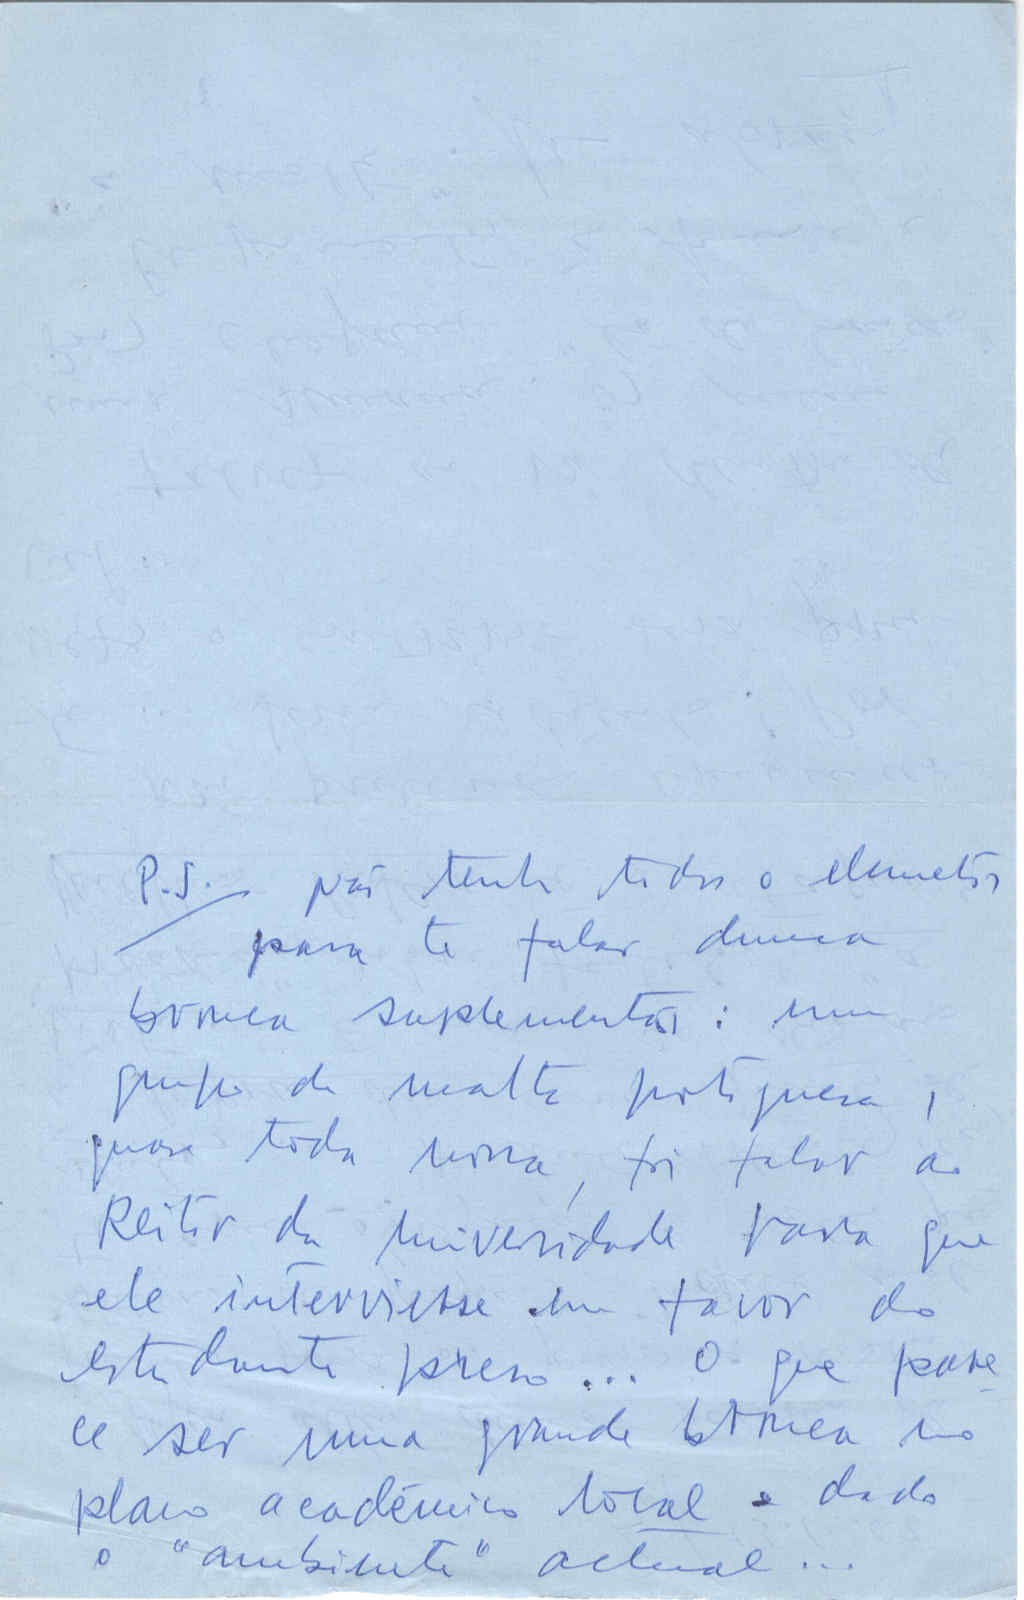 P.S. não tenho todos o elementos
para te falar duma
bronca suplementar: um
grupo de malta portuguesa,
quase toda nossa, foi falar ao
Reitor da Universidade para que
ele interviesse em favor do
estudante preso... O que pare-
ce ser uma grande bronca no
plano académico local e dado
o "ambiente" actual...